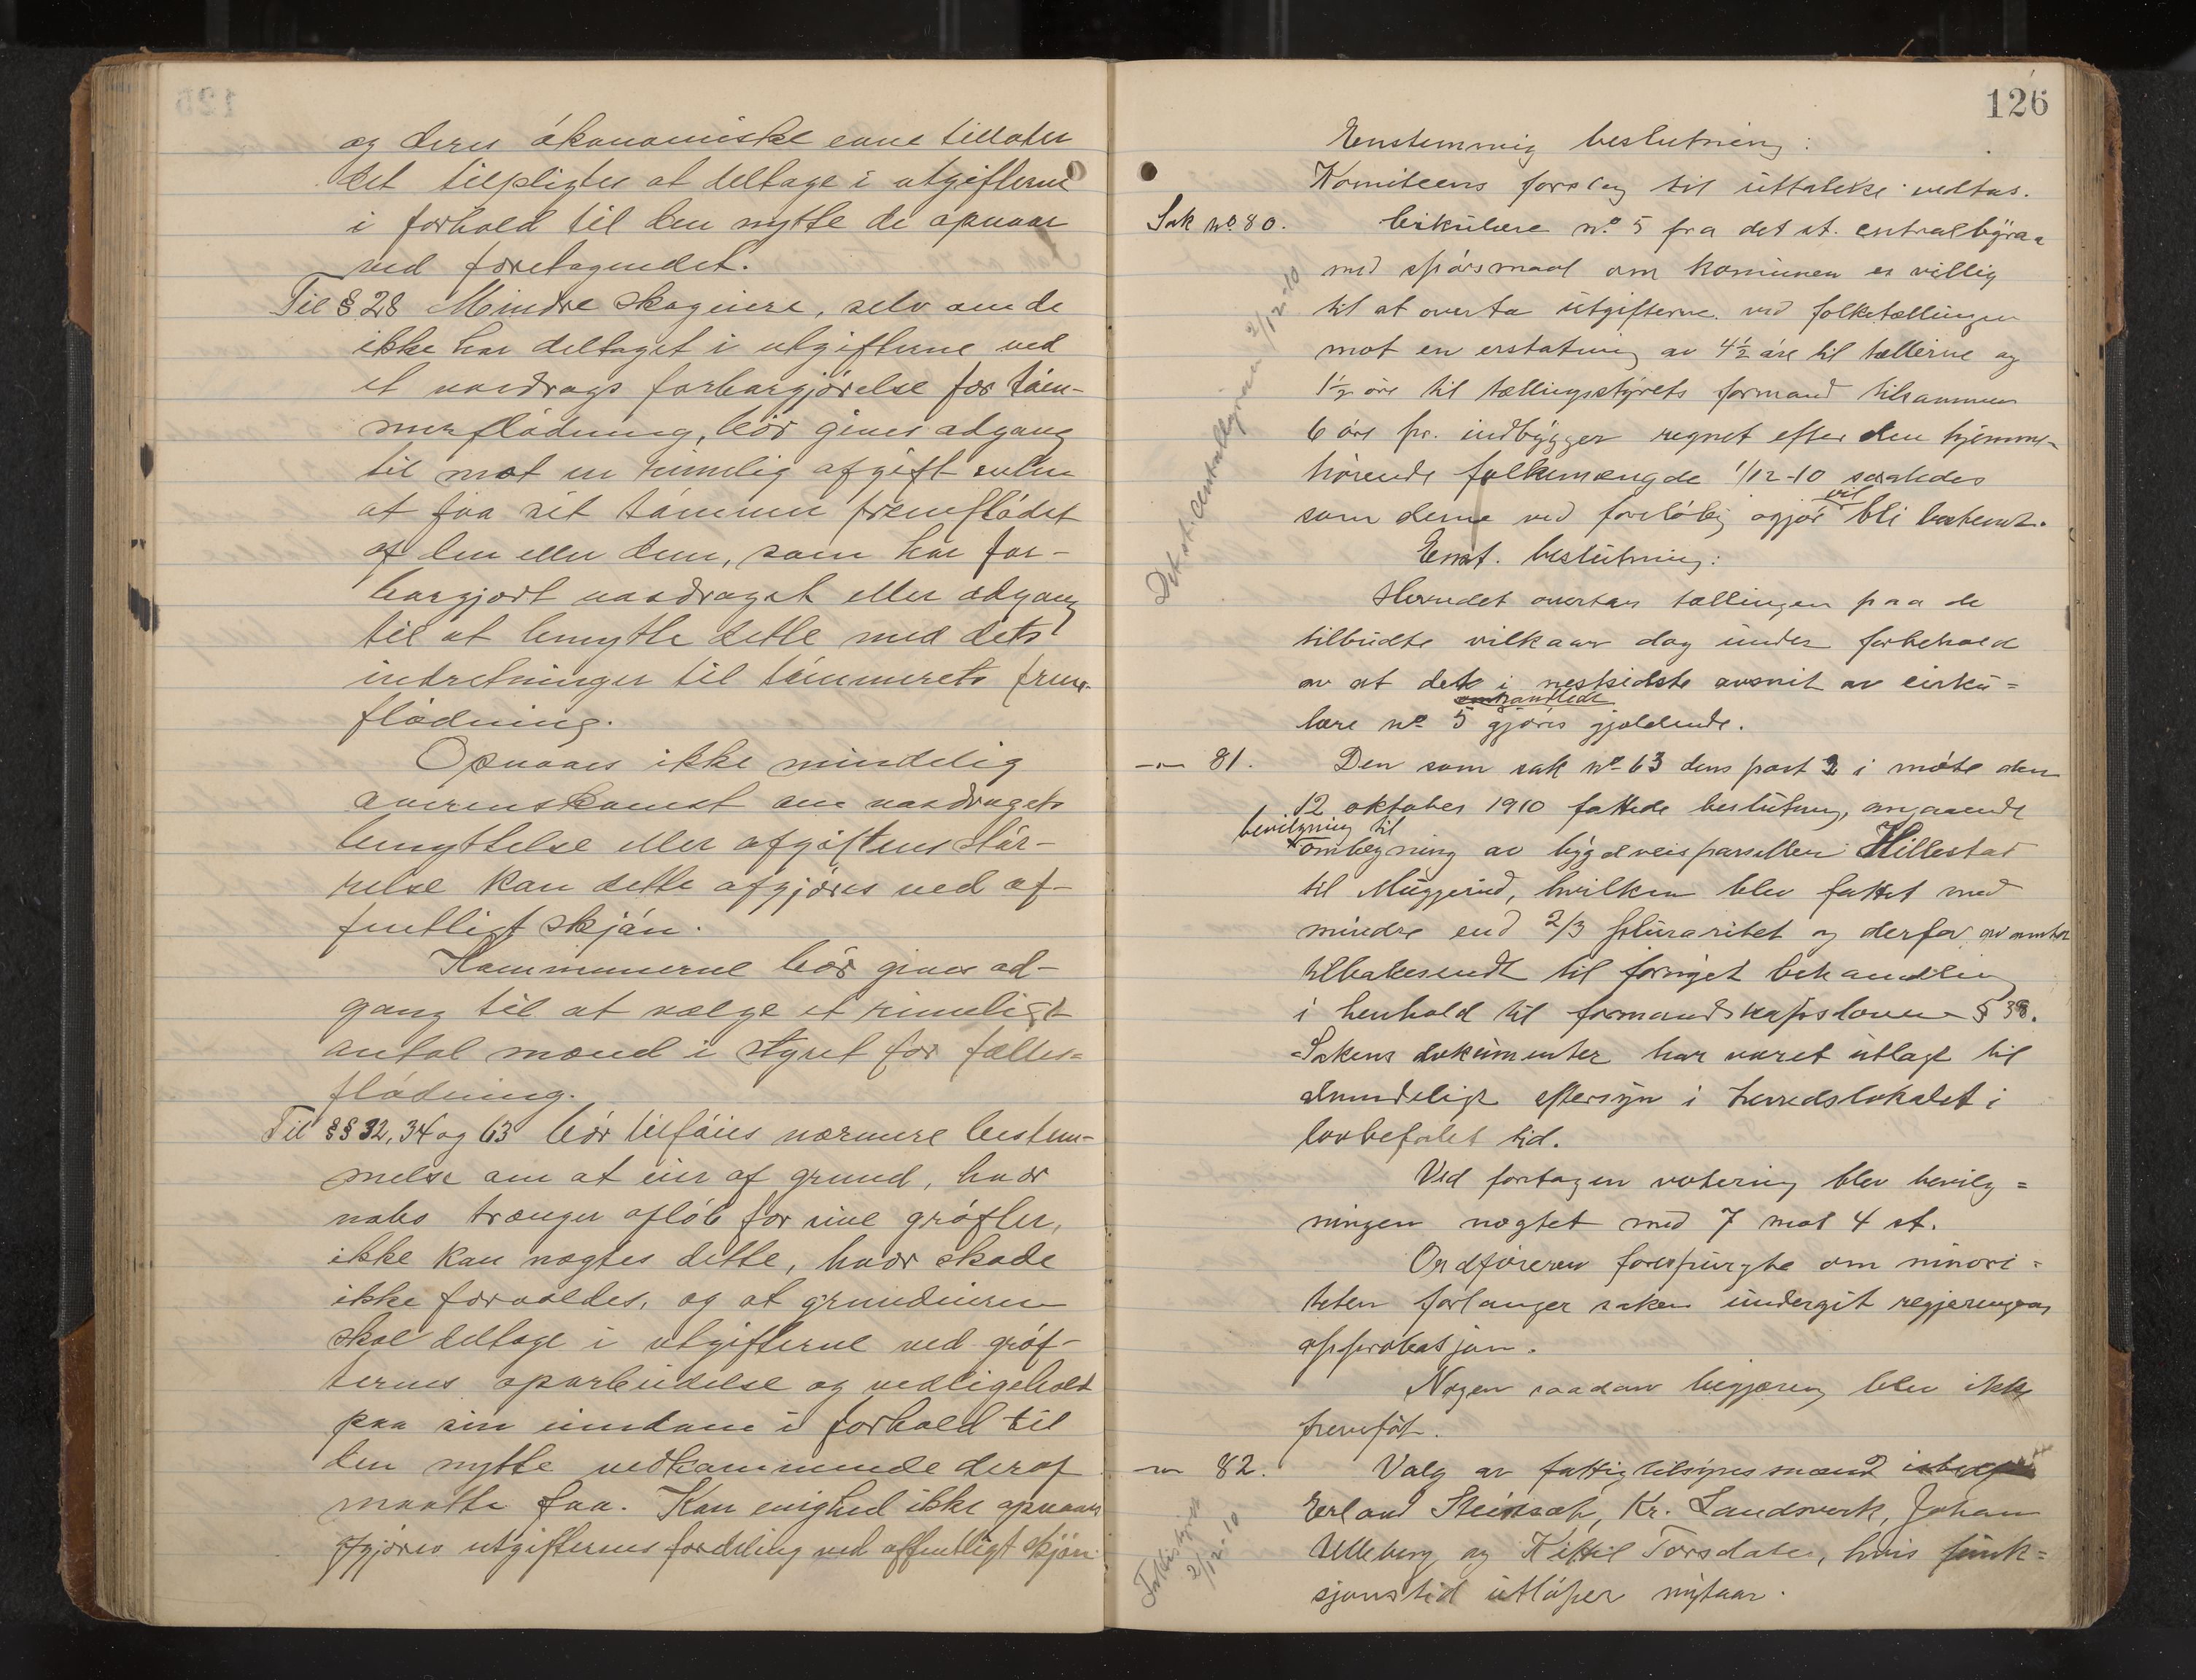 og deres økonomiske evne tillater
det tilpligtes at deltage i utgifterne
i forhold til den nytte de opnaar
ved foretagendet.
Til § 28 Mindre skogeiere, selv om de
ikke har deltaget i utgifterne ved
et vasdrags farbargjørelse for tøm-
merflødning, bør gives adgang
til mot en rimelig afgift enten
at faa sit tømmer fremflødet
af den eller dem, som har far-
bargjort vasdraget eller adgang
til at benytte dette med dets
indretninger til tømmerets frem-
flødning.
Opnaaes ikke mindelig
overenskomst om vasdragets
benyttelse eller afgiftens stør-
relse kan dette afgjøres ved of-
fentligt skjøn.
Kommunerne bør gives ad-
gang til at vælge et rimeligt
antal mænd i styret for fælles-
flødning.
Til §§ 32, 34 og 63 bør tilføies nærmere bestem-
melse om at eier af grund, hvor
nabo trænger afløb for sine grøfter,
ikke kan nægtes dette, hvor skade
ikke forvoldes, og at grundeieren
skal deltage i utgifterne ved grøf-
ternes oparbeidelse og vedligehold
paa sin eiendom i forhold til
den nytte vedkommende deraf
maatte faa. Kan enighed ikke opnaaes
afgjøres utgifternes fordeling ved offentligt skjøn.
126
Enstemmig beslutning:
Komiteens forslag til uttalelse vedtas.
Sak nº 80. Cirkulære nº 5 fra det st. centralbyraa
med spørsmaal om komunen er villig
til at overta utgifterne ved folketællingen
mot en erstatning av 4½ øre til tællerne og
1½ øre til tællingsstyrets formand tilsammen
6 øre pr. indbygger regnet efter den hjemme-
hørende folkemængde 1/12-10 saaledes
som denne ved foreløbig opgjør vil bli bestemt.
Det st. centralbyraa 2/12-10
Enst. beslutning:
Herredet overtar tællingen paa de
tilbudte vilkaar dog under forbehold
av at det i næstsidste avsnit av cirku=
lære nº 5 omhandlede gjøres gjældende.
—"— 81. Den som sak nº 63 dens post 2 i møte den
12 oktober 1910 fattede beslutning, angaaende
bevilgning til
omlægning av bygdeveisparsellen Hillestad
til Muggerud, hvilken blev fattet med
mindre end 2/3 pluraritet og derfor av amtet
tilbakesendt til fornyet behandling
i henhold til formandskapsloven § 38.
Sakens dokumenter har været utlagt til
almindeligt eftersyn i herredslokalet i
lovbefalet tid.
Ved foretagen votering blev bevilg=
ningen nægtet med 7 mot 4 st.
Ordføreren forespurgte om minori=
teten forlanger saken undergit regjeringens
approbasjon.
Nogen saadan begjæring blev ikke
fremført.
—"— 82. Valg av fattigtilsynsmænd
Erland Steinsæt, Kr. Landsverk, Johan
Ulleberg og Kittil Torsdalen, hvis funk=
sjonstid utløper nytaar.
Fattigstyret 2/12-10